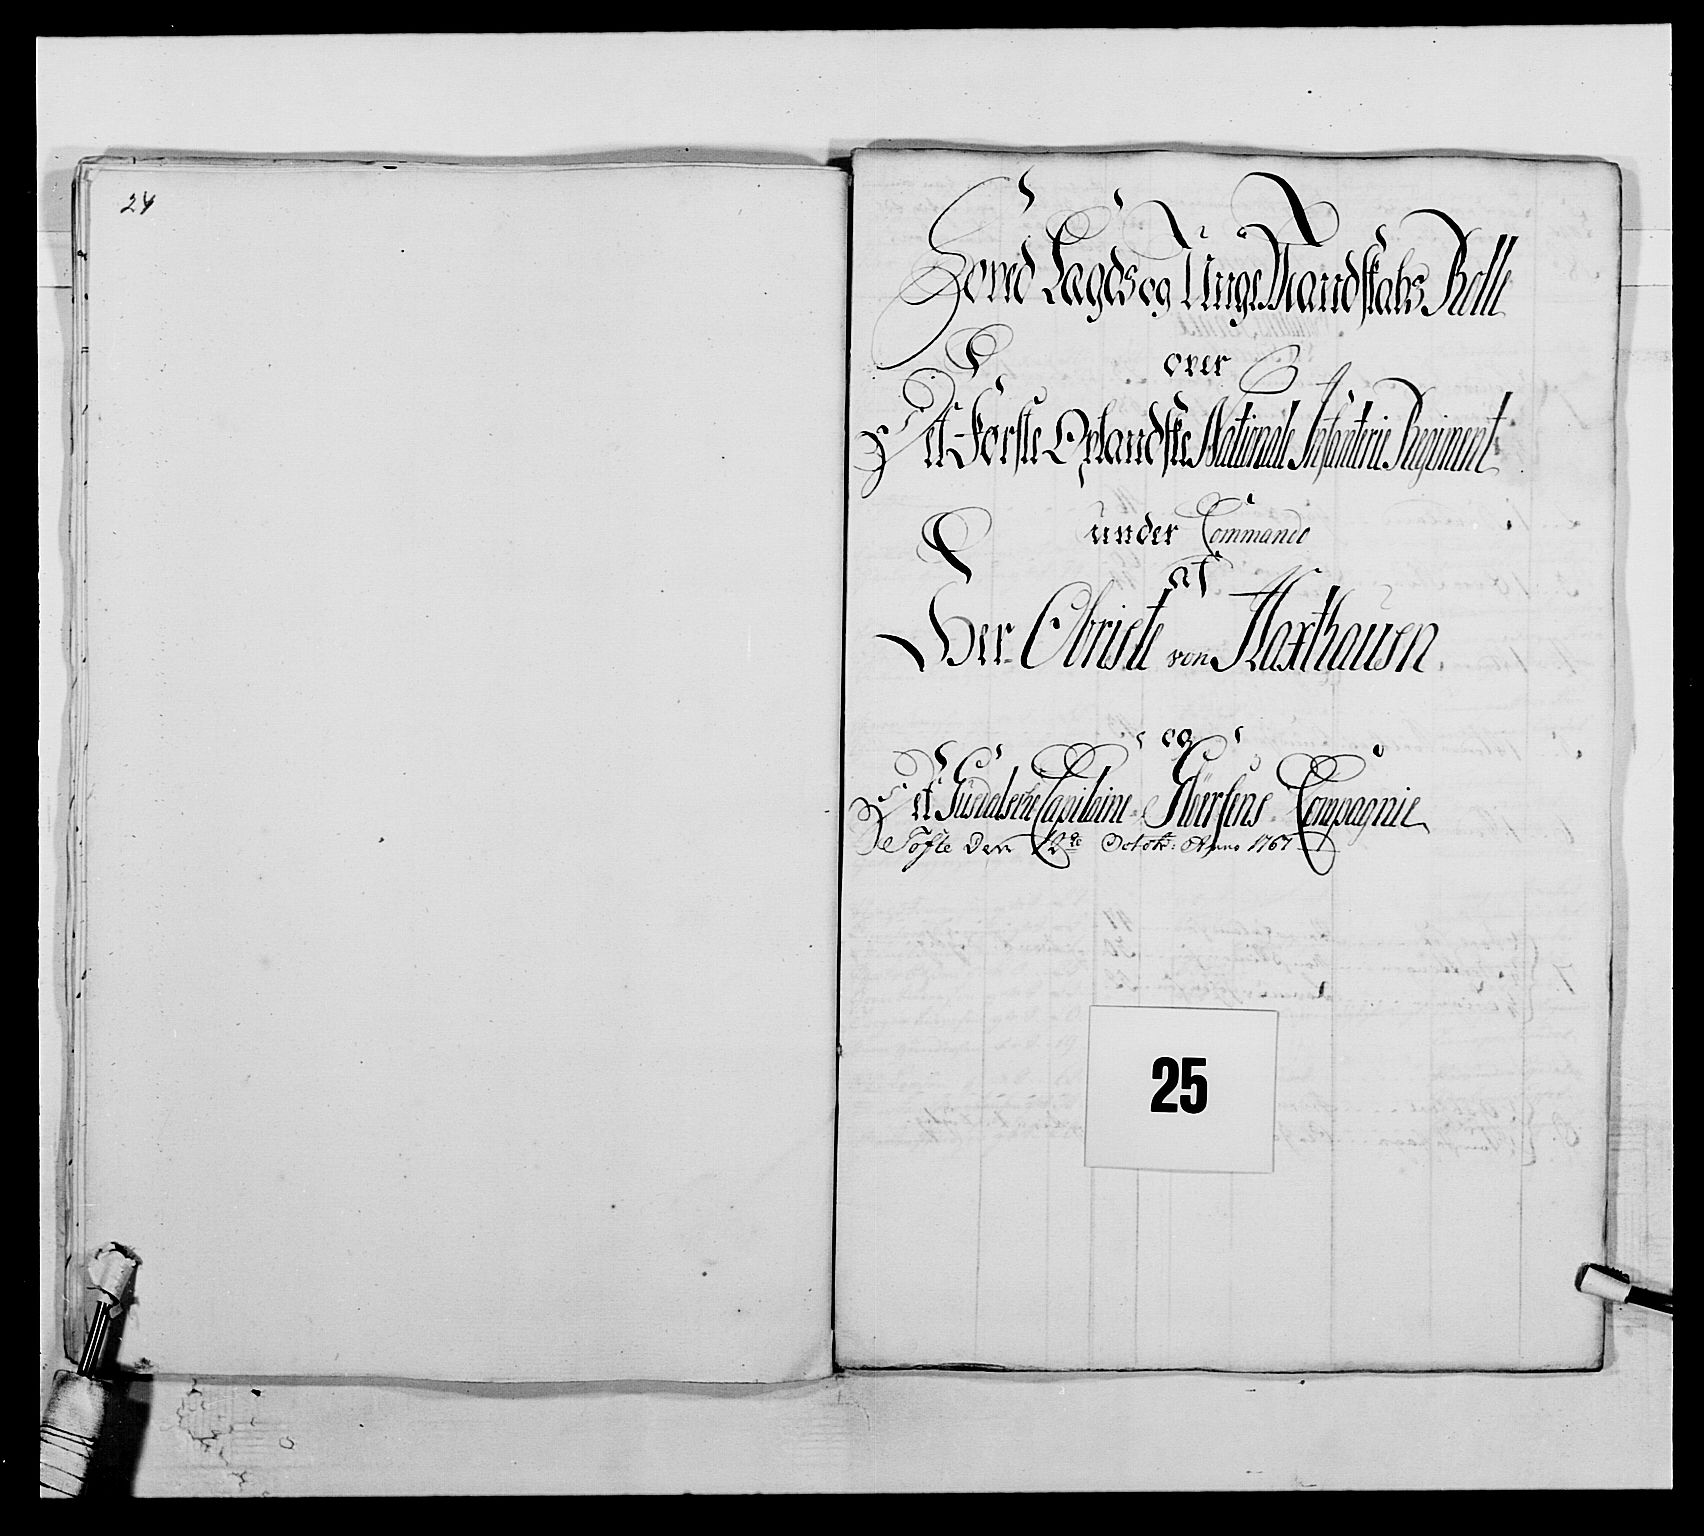 24
Hoved Lægds og Unge Mandskabs Rolle
over
Det Første Oplandske Nationale Infanterie Regiment
under Commando
af
Her Obriste von Haxthausen
og
Det Guusdalske Capitaine Iversens Compagnie
Tofte den 12te Octobr: Anno 1767
25